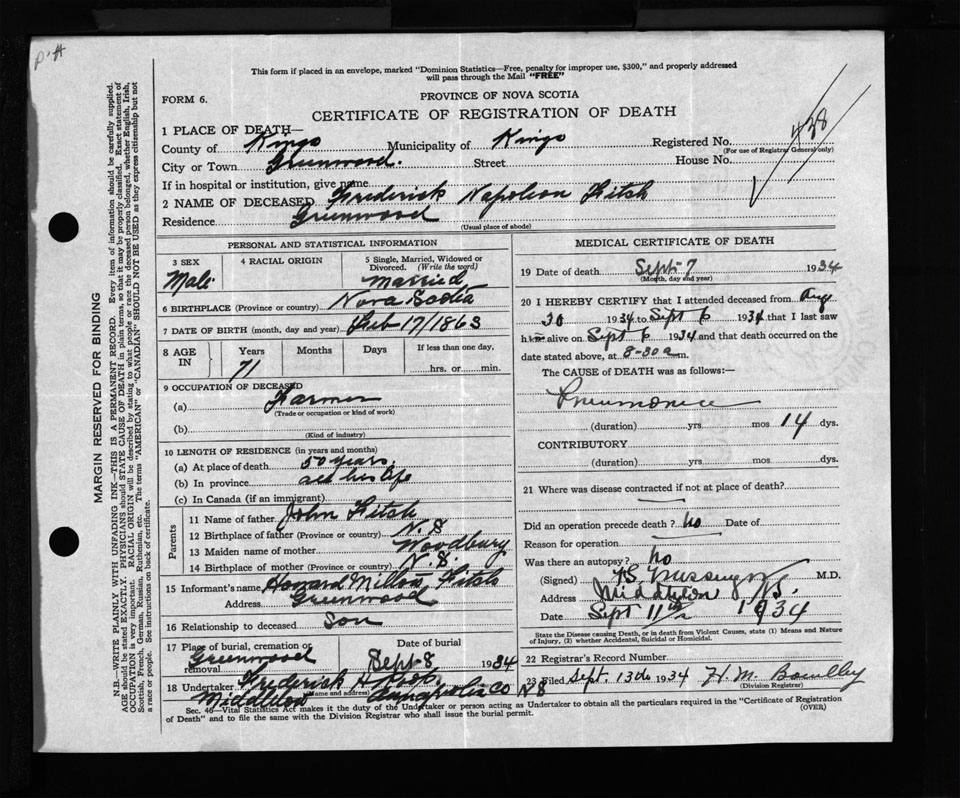 P.H
This form if placed in an envelope, marked "Dominion Statistics—Free, penalty for improper use, $300," and properly addressed
will pass through the Mail "FREE"
FORM 6.
PROVINCE OF NOVA SCOTIA
CERTIFICATE OF REGISTRATION OF DEATH
438
1 PLACE OF DEATH—
County of Kings Municipality of Kings Registered No.
(For use of Registrar General only)
City or Town Greenwood. Street House No.
If in hospital or institution, give name
2 NAME OF DECEASED Frederick Napoleon Fitch
Residence Greenwood
(Usual place of abode)
PERSONAL AND STATISTICAL INFORMATION
3 SEX 4 RACIAL ORIGIN 5 Single, Married, Widowed or
Divorced. (Write the word)
Male Married
6 BIRTHPLACE (Province or country) Nova Scotia
7 DATE OF BIRTH (month, day and year) Feb 17/1863
8 AGE IN Years Months Days If less than one day,
71 hrs. or min.
9 OCCUPATION OF DECEASED
(a) Farmer
(Trade or occupation or kind of work)
(b)
(Kind of industry)
10 LENGTH OF RESIDENCE (in years and months)
(a) At place of death 50 years.
(b) In province all his life
(c) In Canada (if an immigrant)
Parents
11 Name of father John Fitch
12 Birthplace of father (Province or country) N.S.
13 Maiden name of mother Woodbury
14 Birthplace of mother (Province or country) N.S.
15 Informant's name Howard Fitch
Address Greenwood
16 Relationship to deceased Son
17 Place of burial, cremation or removal Date of burial
Greenwood Sept-8 1934
18 Undertaker Frederick H
(Name and address)
Middleton Annapolis Co N S
MEDICAL CERTIFICATE OF DEATH
19 Date of death Sept-7 1934
(Month, day and year)
20 I HEREBY CERTIFY that I attended deceased from Aug
30 1934 to Sept 6 1934 that I last saw
him alive on Sept 6 1934 and that death occurred on the
date stated above, at 8-30 a m.
The CAUSE of DEATH was as follows:—
Pneumonia
(duration) yrs mos 14 dys.
CONTRIBUTORY
(duration) yrs. mos. dys.
21 Where was disease contracted if not at place of death?
Did an operation precede death? No Date of
Reason for operation
Was there an autopsy? No
(Signed) M.D.
Address Middleton N.S.
Date Sept 11th 1934
State the Disease causing Death, or in death from Violent Causes, state (1) Means and Nature
of Injury, (2) whether Accidental, Suicidal or Homicidal.
22 Registrar's Record Number
23 Filed Sept. 13th 1934 H. M.
(Division Registrar)
Sec. 46—Vital Statistics Act makes it the duty of the Undertaker or person acting as Undertaker to obtain all the particulars required in the "Certificate of Registration
of Death" and to file the same with the Division Registrar who shall issue the burial permit. (OVER)
MARGIN RESERVED FOR BINDING
N.B.—WRITE PLAINLY WITH UNFADING INK—THIS IS A PERMANENT RECORD. Every item of information should be carefully supplied.
AGE should be stated EXACTLY. PHYSICIANS should STATE CAUSE OF DEATH in plain terms, so that it may be properly classified. Exact statement of
OCCUPATION is very important. RACIAL ORIGIN will be described by stating to what people or race the deceased person belonged, whether English, Irish,
Scottish, French, German, Russian, Ruthenian, etc. The terms "AMERICAN" or "CANADIAN" SHOULD NOT BE USED as they express citizenship but not
a race or people. See instructions on back of certificate.